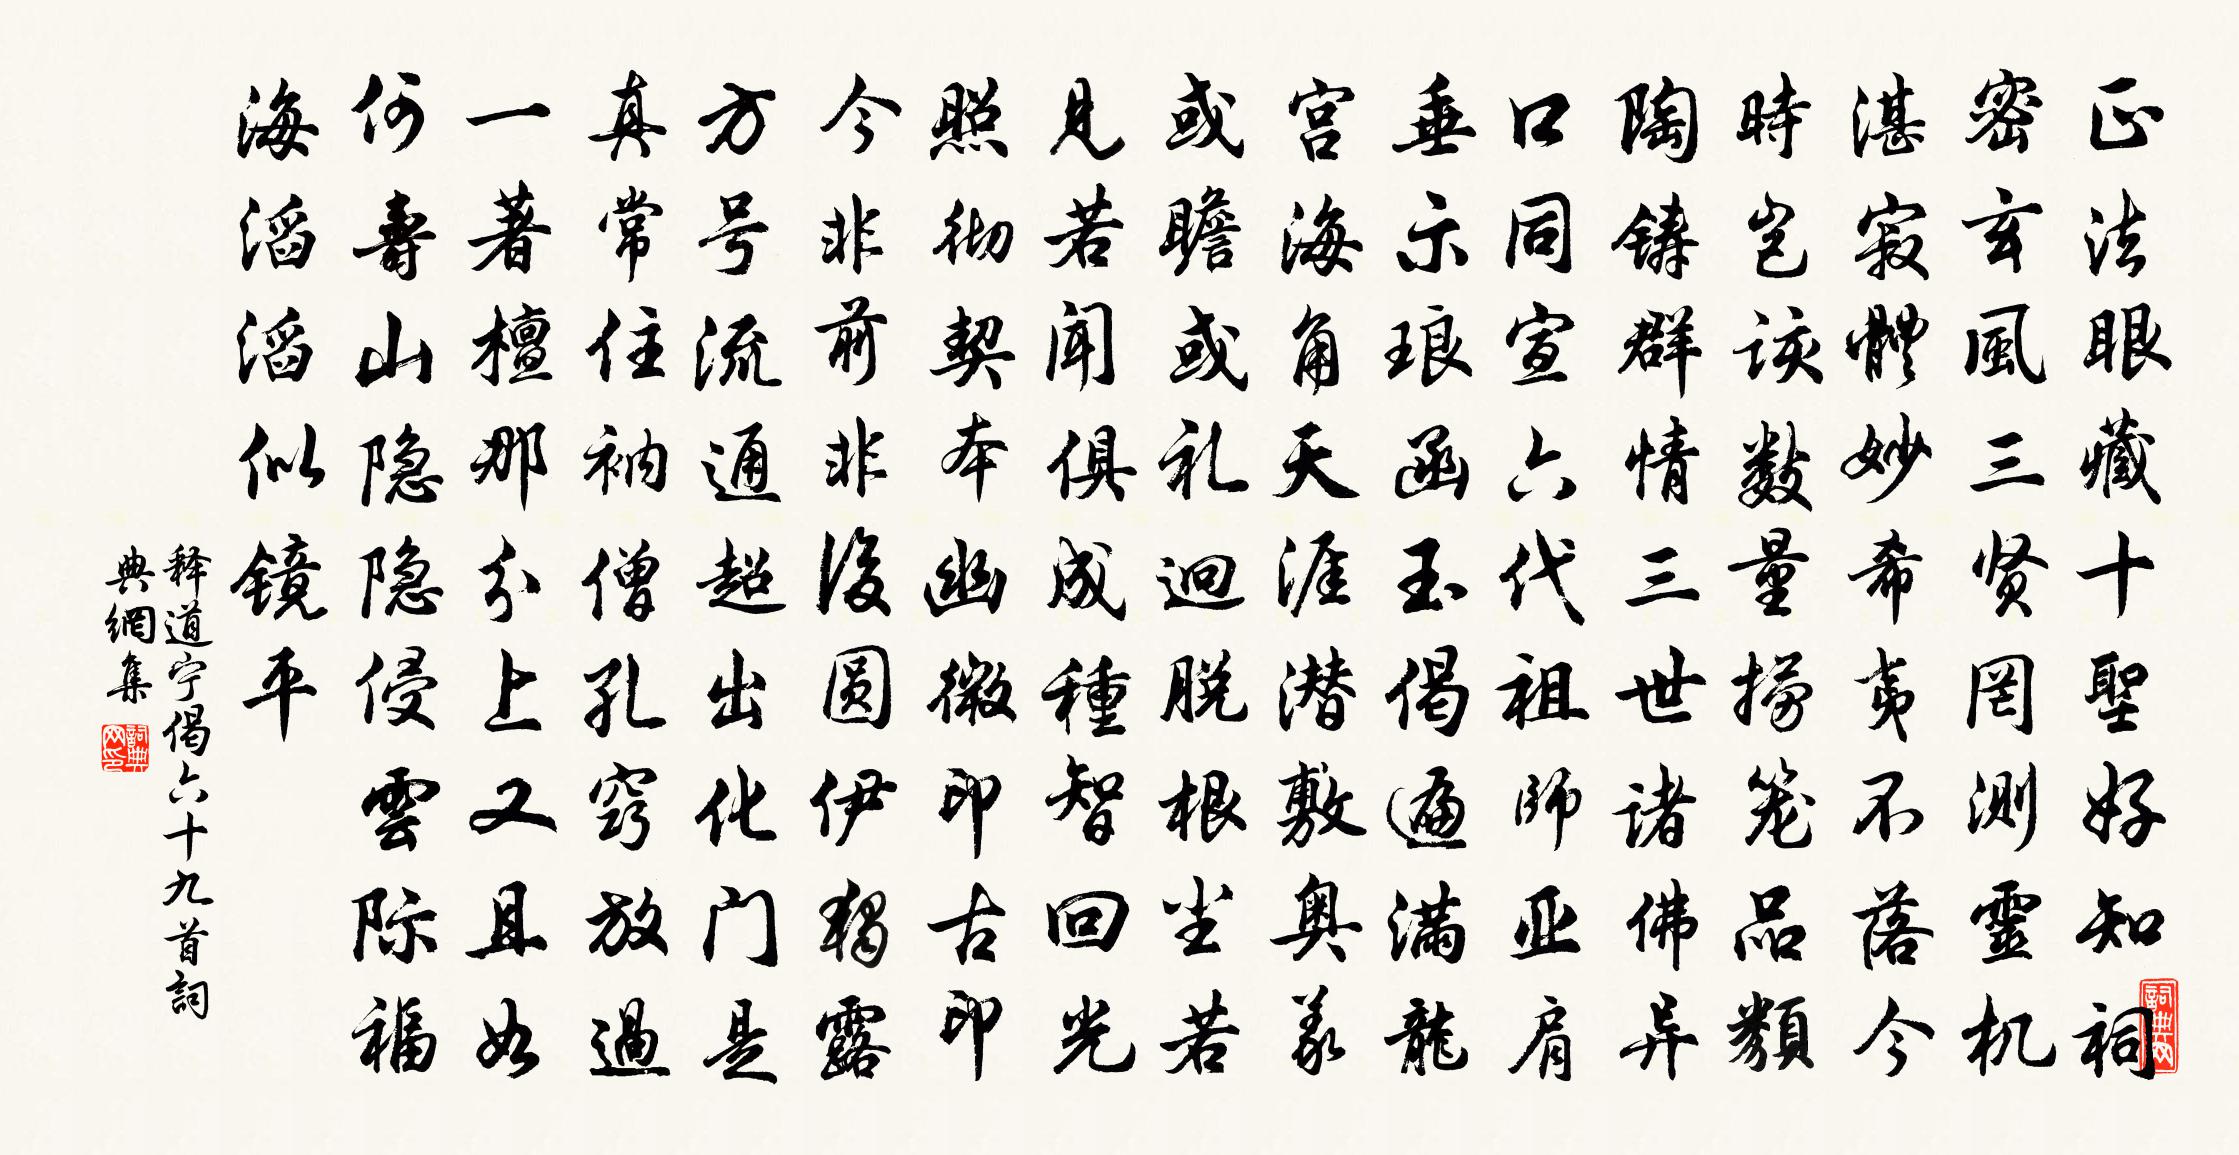 正法眼藏十聖好知祠
密玄風三贤罔测靈机
湛寂體妙希夷不落今
時岂该数量撈笼品類
陶鑄群情三世诸佛异
口同宣六代祖師亚肩
垂示琅函玉偈遍满龍
宫海角天涯潜敷奥義
或瞻或礼迥脱根尘若
見若闻俱成種智回光
照彻契本幽微印古印
今非前非後圆伊獨露
方号流通超出化门是
真常住衲僧孔窍放過
一著檀那分上又且如
何壽山隐隐侵雲际福
海滔滔似镜平
释道宁偈六十九首詞
典網集
詞典网
詞典网印